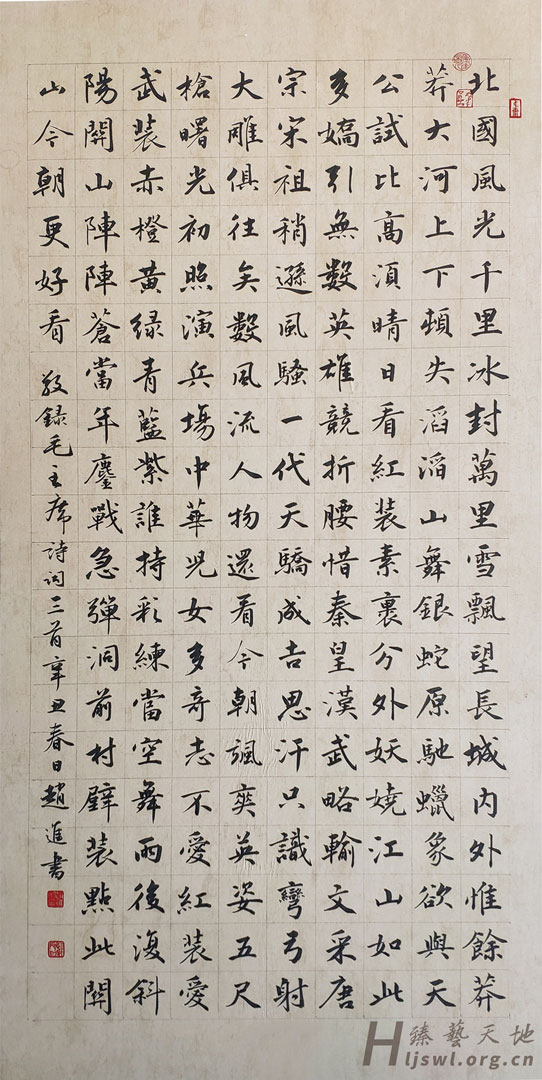 北國風光千里冰封萬里雪飄望長城内外惟餘莽
莽大河上下頓失滔滔山舞銀蛇原馳蠟象欲與天
公試比高須晴日看紅装素裹分外妖嬈江山如此
多嬌引無數英雄競折腰惜秦皇漢武略輸文采唐
宗宋祖稍遜風騷一代天驕成吉思汗只識彎弓射
大雕俱往矣數風流人物還看今朝颯爽英姿五尺
槍曙光初照演兵場中華兒女多奇志不愛紅装愛
武装赤橙黄緑青藍紫誰持彩練當空舞雨後復斜
陽關山陣陣蒼當年鏖戰急彈洞前村壁装點此關
山今朝更好看 敬録毛主席詩詞三首辛丑春日趙進書
臻藝天地
Hljswl.org.cn